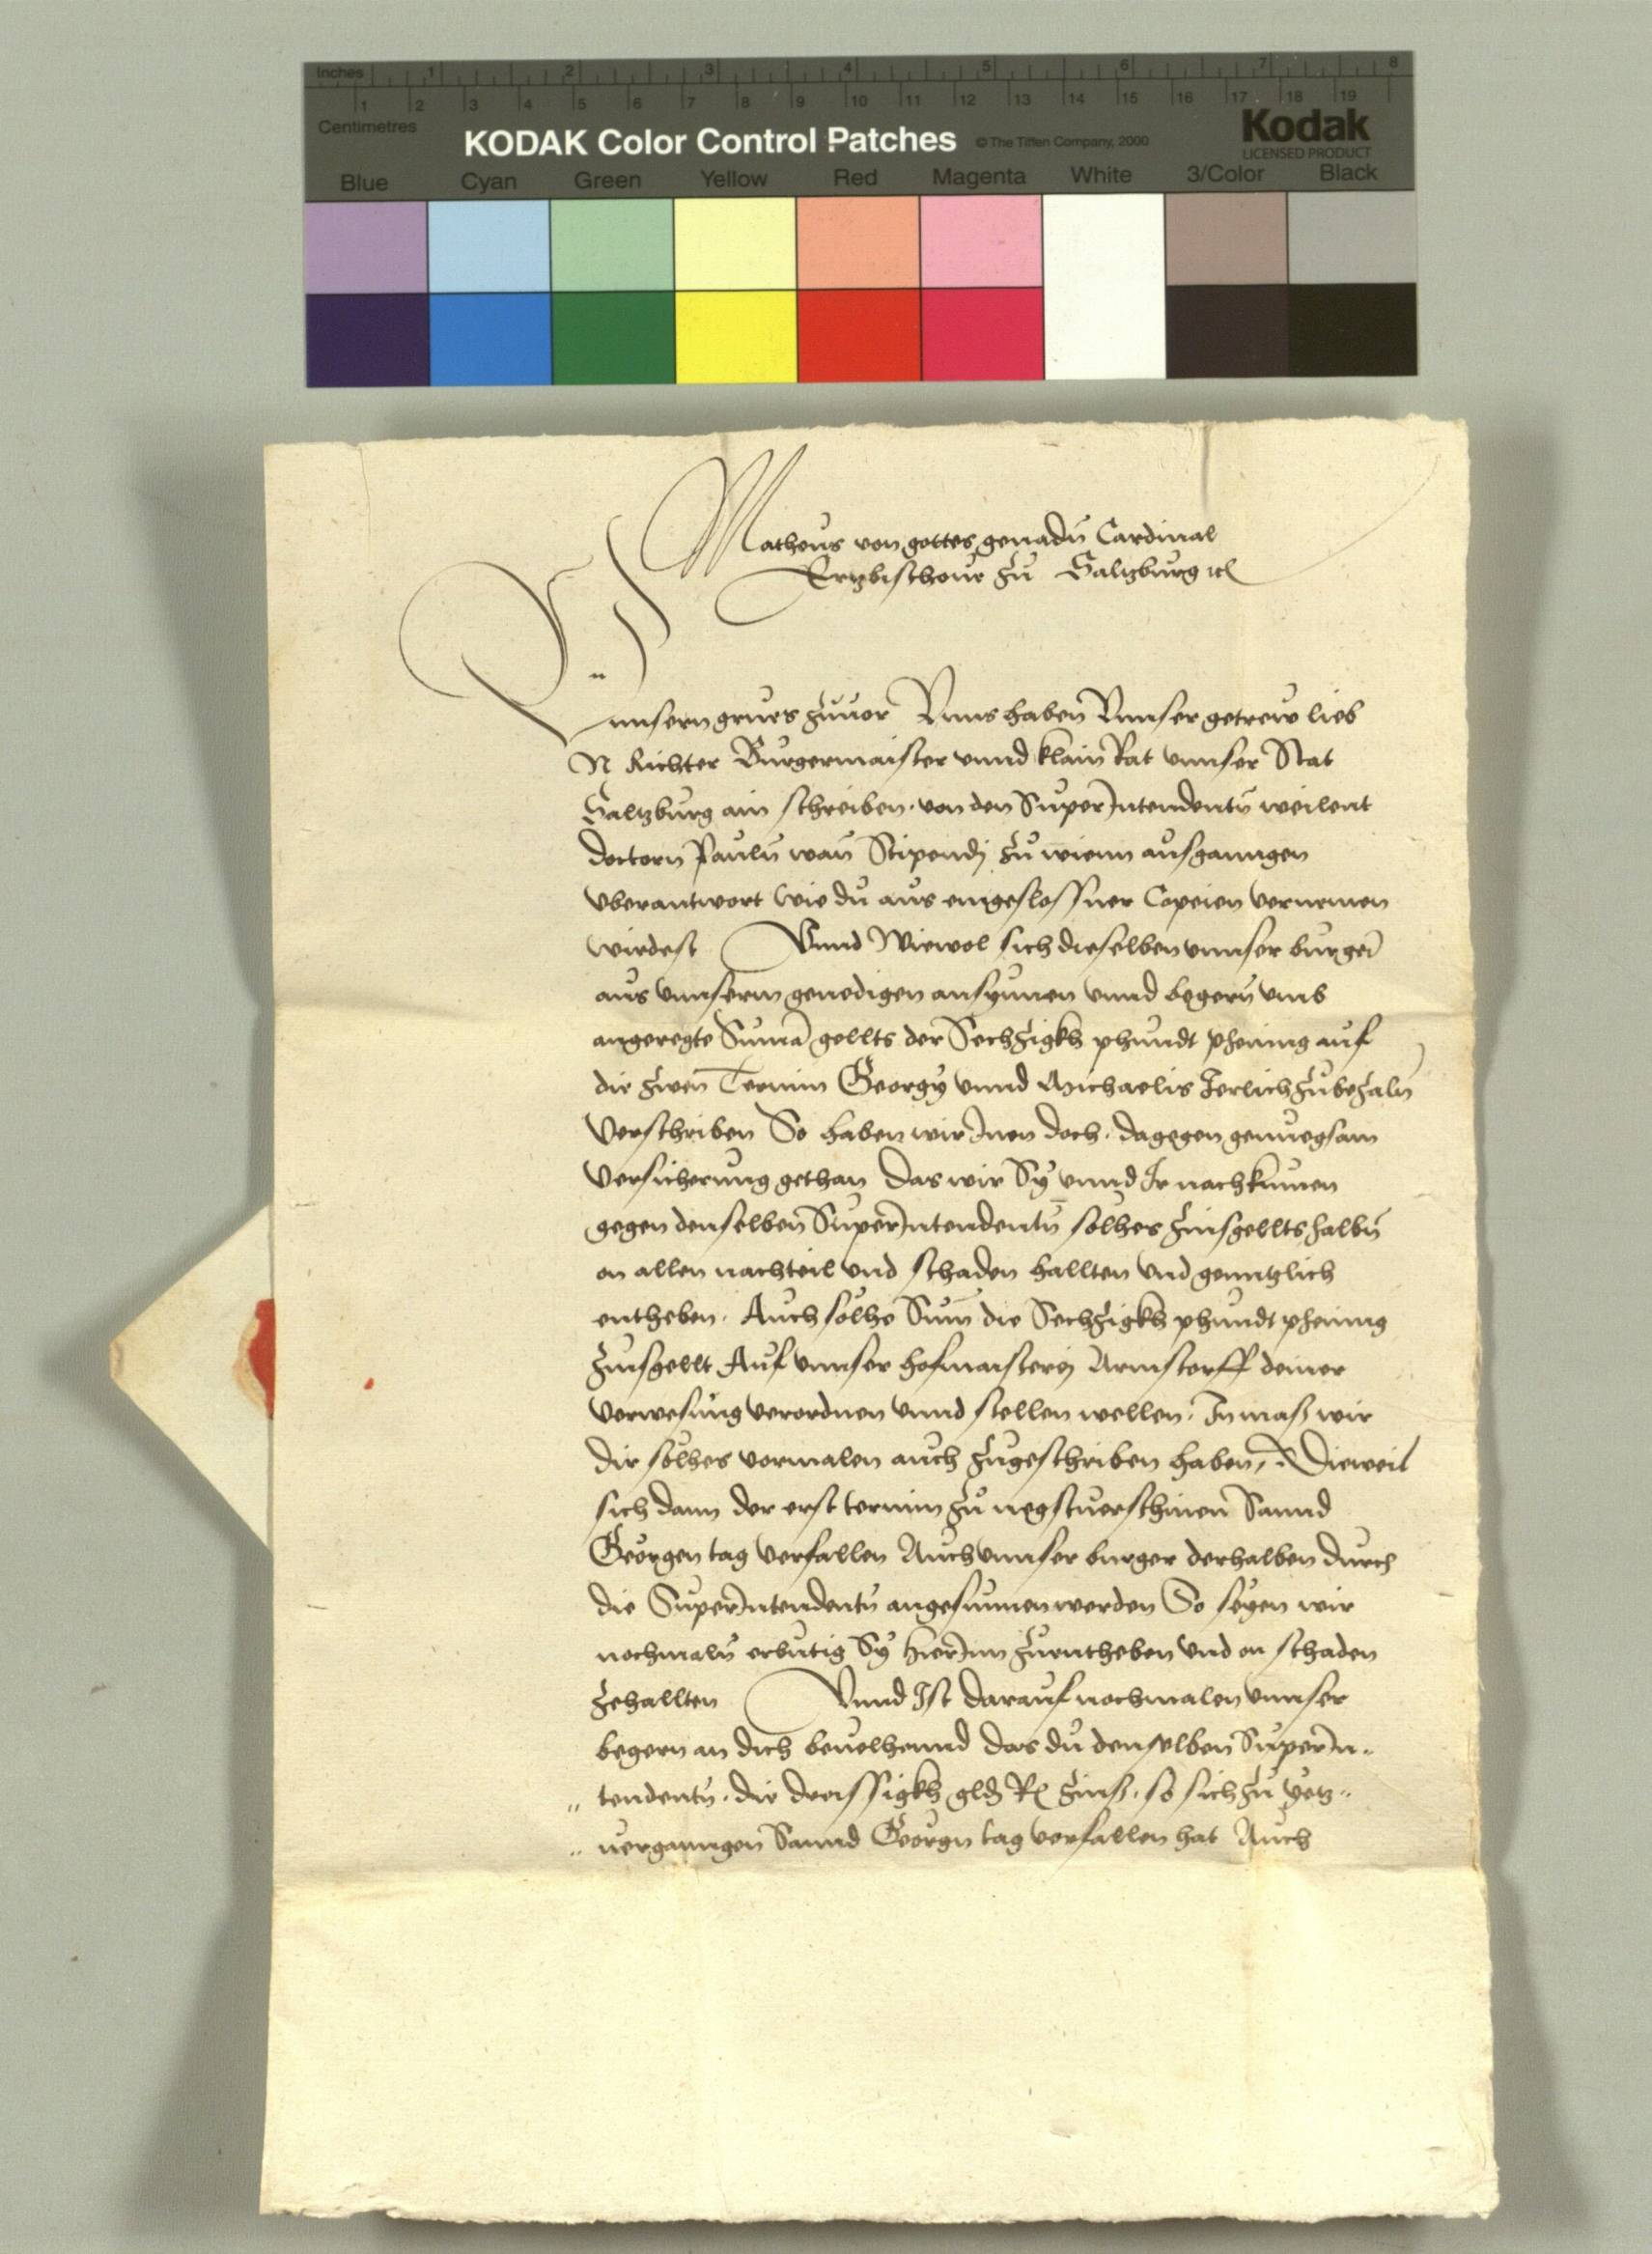 Inches 1 2 3 4 5 6 7 8
1 2 3 4 5 6 7 8 9 10 11 12 13 14 15 16 17 18 19
Centimetres
KODAK Color Control Patches © The Tiffen Company, 2000 Kodak
LICENSED PRODUCT
Blue Cyan Green Yellow Red Magenta White 3/Color Black
Matheus von gottes genadn̄ Cardinal
Ertzbischoue zu Saltzburg ꝛc
Vnnsern grues zuuor Vnns haben Vnnser getrew lieb
N Richter Burgermaister vnnd klain Rat vnnser Stat
Saltzburg ain schreiben von den Superintendentn̄ weilent
doctorn Pauln̄ wan̄ Stipendj zu wienn ausganngen
vberantwort wie du aus eingeslossner Copeien vernemen
wirdest Vnnd Wiewol sich dieselben vnnser burger
aus vnnserm genedigen ansynnen vnnd begern̄ vmb
angeregte Suma gellts der Sechzigkh phundt phening auf
die zwen Termin Georgy vnnd Michaelis Jerlich zubezaln̄
Verschriben So haben wir Inen doch dagegen genuegsam
Versicherung gethan das wir Sy vnnd Ir nachkumen
gegen denselben Superintendentn̄ solhes zinsgellts halbn̄
on allen nachteil vnd schaden hallten vnd genntzlich
entheben. Auch solhe Sum̄ die Sechzigkh phundt phening
zinsgellt Auf vnnser hofmaisterey Arnstorff deiner
verwesung verordnen vnnd stellen wellen. Inmass wir
dir solhes vormalen auch zugeschriben haben, Dieweil
sich dann der erst termin zu negstuerschinen Sannd
Georgen tag verfallen Auch vnnser burger derhalben durch
die Superintendentn̄ angesunnen werden So seyen wir
nochmaln̄ erbutig Sy hierInn zuentheben vnd on schaden
zehallten Vnnd Ist darauf nochmalen vnnser
begern an dich beuelhennd das du denselben Superin-
tendentn̄ die dreissigkh gld R zinss. so sich zu yetz-
uerganngen Sannd Georgn tag verfallen hat Auch